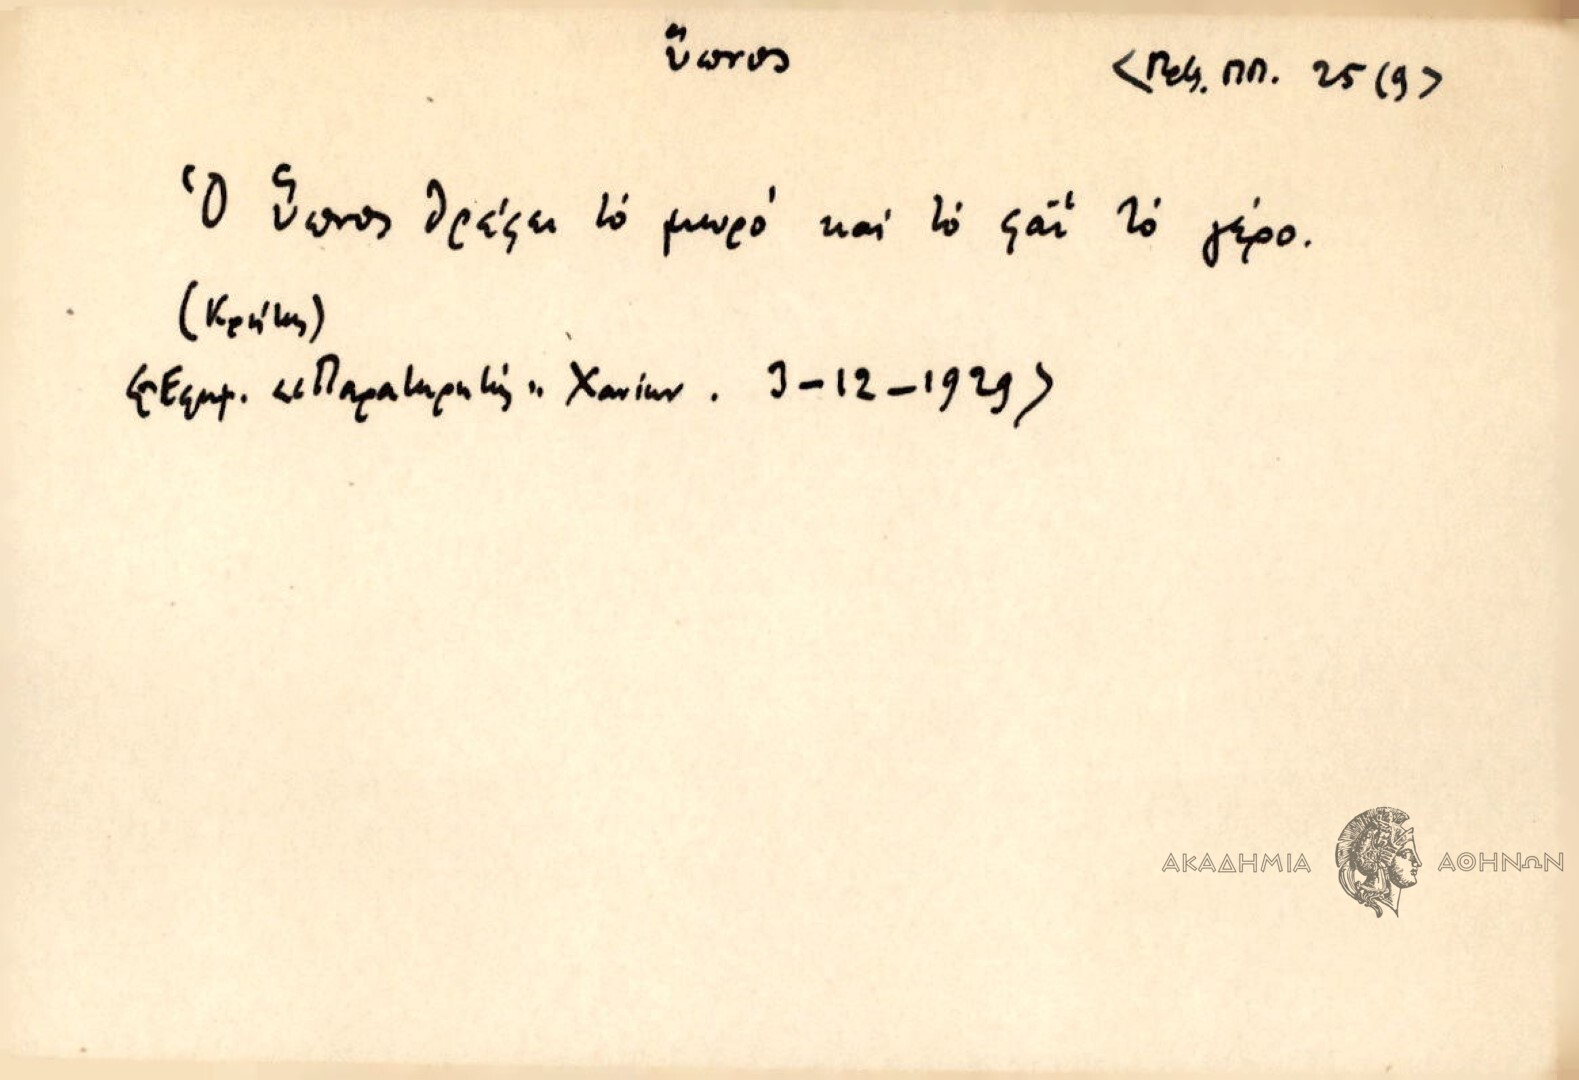 ὕπνος
<Πετ. ΠΠ. 25 (9>
Ὁ ὕπνος θρέφει τό μωρό καί τό φάϊ τό γέρο.
(Κρήτη)
<Ἐφημ. «Παρατηρητής» Χανίων. 3-12-1929>
ΑΚΑΔΗΜΙΑ ΑΘΗΝΩΝ